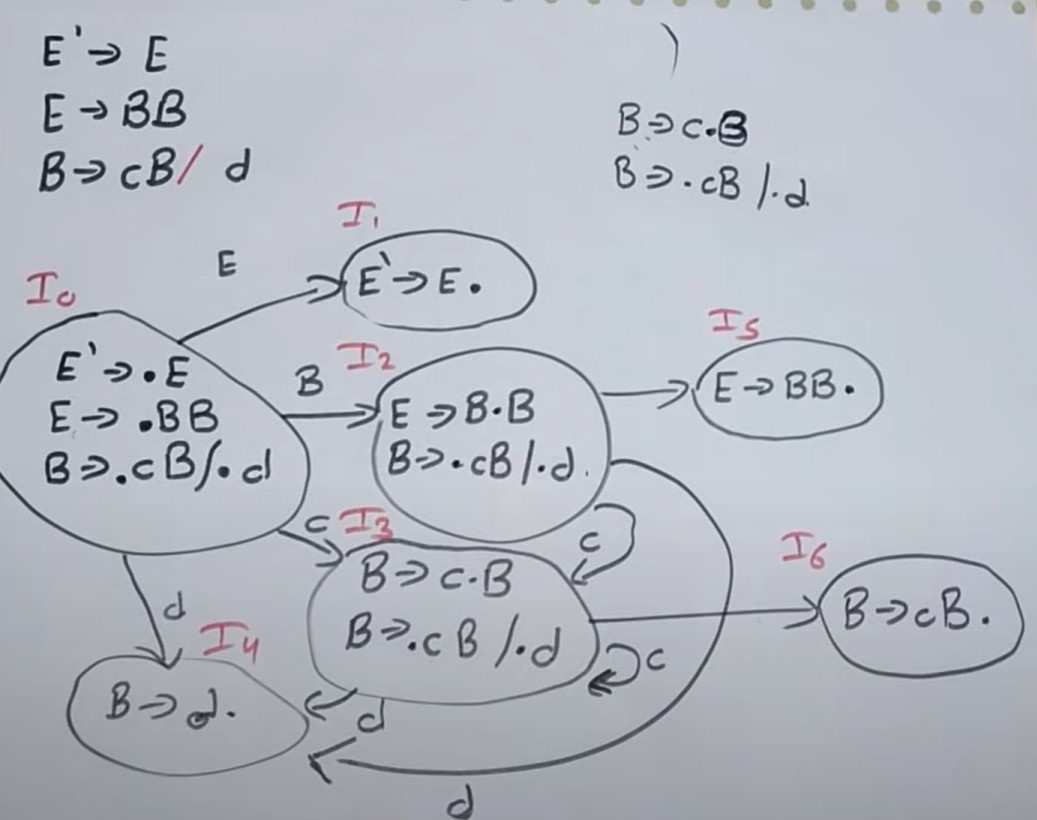 E'→ E
E → BB
B→ cB/ d
B→c.B
B→.cB /.d
I₁
E
E`→E.
I₀
E'→.E
E→ .BB
B→.cB/.d
B
I₂
E →B.B
B→.cB/.d.
I₅
E→BB.
c
I₃
B→c.B
B→.cB/.d
c
c
I₆
B→cB.
d
I₄
B→d.
d
d